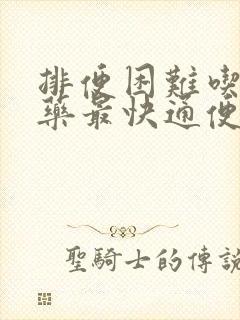 排便困難喫
藥最快通便
聖騎士的傳說